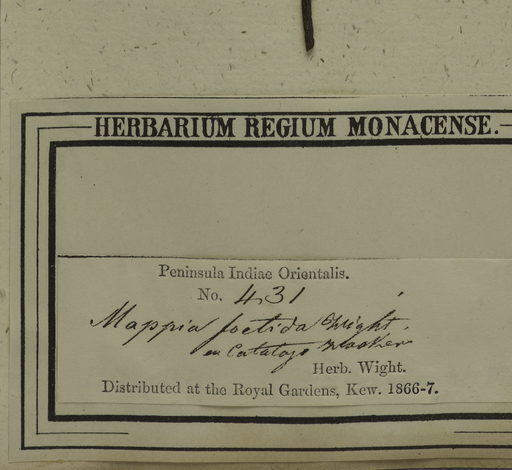 HERBARIUM REGIUM MONACENSE.
Peninsula Indiae Orientalis.
No. 431
Mappia foetida Wight.
en Catalogo Hookeri
Herb. Wight.
Distributed at the Royal Gardens, Kew. 1866-7.